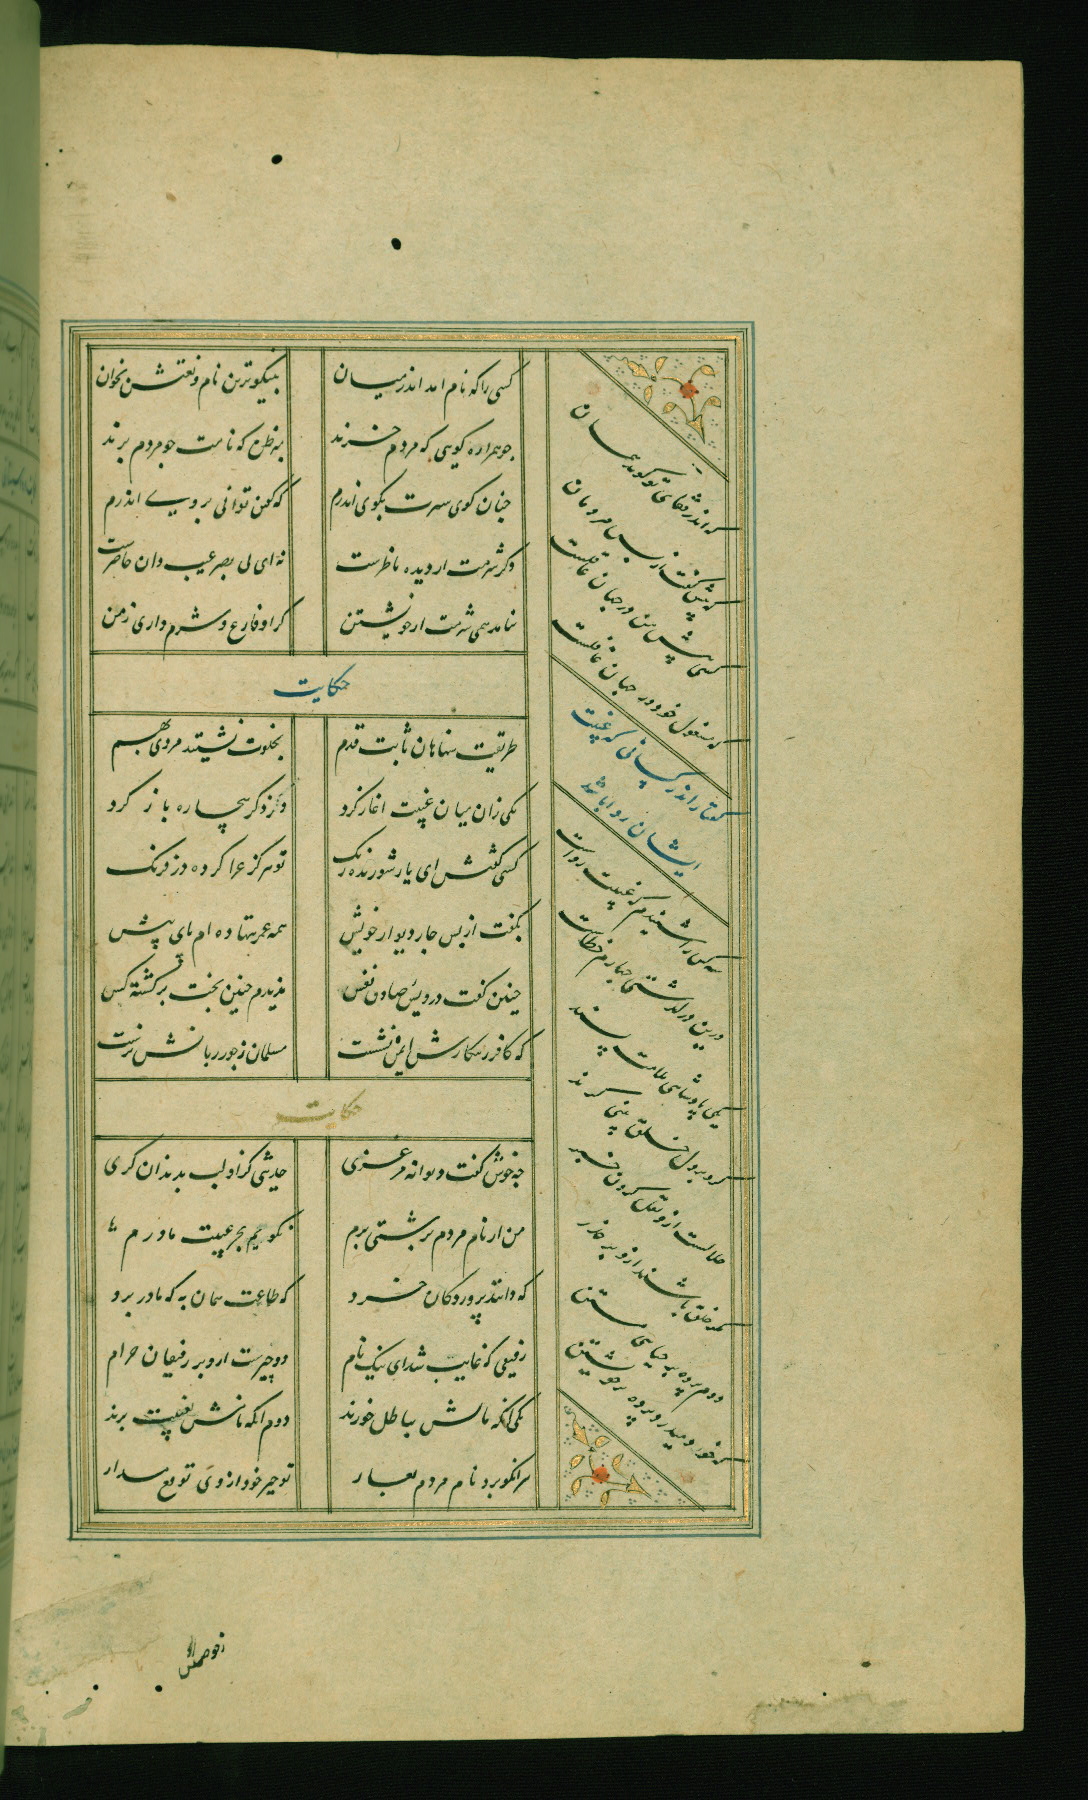 کسی را که نام امد اندر میان
بنیکوترین نام و نعتش بخوان
چو همواره کویی که مردم خرند
مبر ظن که نامت چو مردم برند
چنان کوی سیرت بکوی اندرم
که کفتن توانی بروی اندرم
وکر شرمت از دیده ناظرست
نه ای بی بصر غیب دان حاضرست
نیاید همی شرمت از خویشتن
کزو فارغ و شرم داری ز من
حکایت
طریقت شناسان ثابت قدم
بخلوت نشستند مردی بهم
یکی زان میان غیبت اغاز کرد
در ذکر بیچاره باز کرد
کسی کفتش ای یار شوریده رنک
تو هرکز غزا کرده در فرنک
بکفت از پس چار دیوار خویش
همه عمر ننهاده ام پای پیش
چنین کفت درویش صادق نفس
ندیدم چنین بخت برکشته کس
که کافر ز پیکارش ایمن نشست
مسلمان ز جور زبانش نرست
حکایت
چه خوش کفت دیوانه مرغزی
حدیثی کزو لب بدندان کزی
من ار نام مردم بزشتی برم
نکویم بجز غیبت مادرم
که دانند پروردکان خرد
که طاعت همان به که مادر برد
رفیقی که غایب شد ای نیک نام
دو چیزست ازو بر رفیقان حرام
یکی آنکه مالش بباطل خورند
دوم انکه نامش بغیبت برند
هر انکو برد نام مردم بعار
تو خیر خود از وی توقع مدار
که اندر قفای تو کوید همان
که پیش تو کفت از پس مردمان
کسی پیش من در جهان عاقلست
که مشغول خود در جهان غافلست
کفتار اندر کسانی که غیبت
ایشان روا باشد
سه کس را شنیدم که غیبت رواست
وزین درکذشتی چهارم خطاست
یکی پادشاهی ملامت پسند
کزو بر دل خلق بینی کزند
حلالست ازو نقل کردن خبر
مکر خلق باشند ازو بر حذر
دوم پرده بر بی حیایی متن
که خود میدرد پرده بر خویشتن